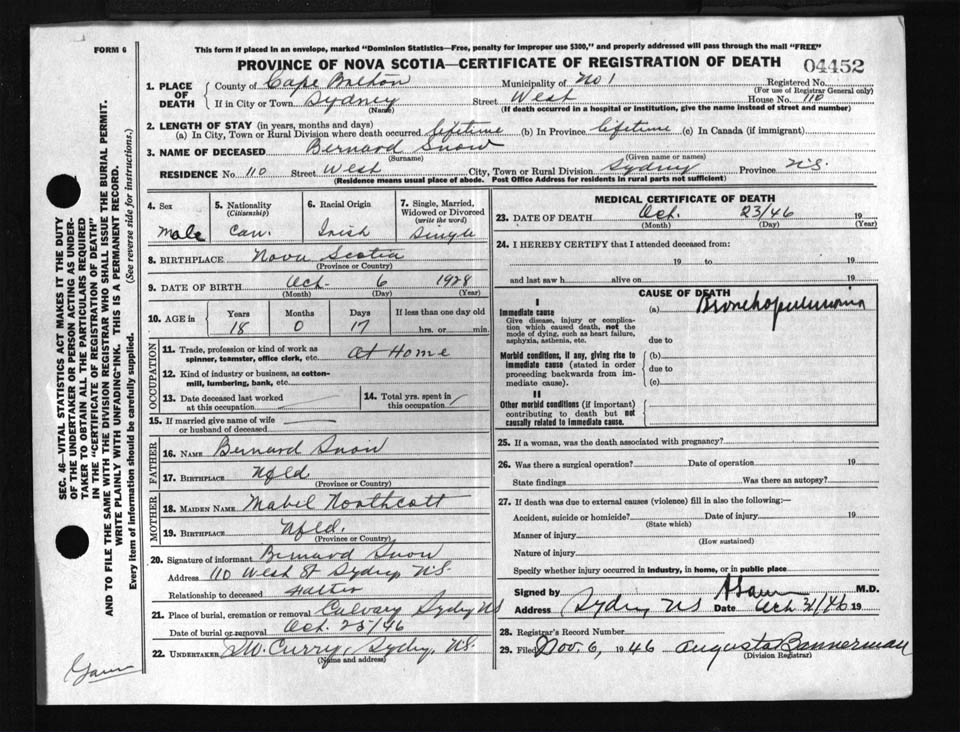 FORM 6
This form if placed in an envelope, marked "Dominion Statistics—Free, penalty for improper use $300," and properly addressed will pass through the mail "FREE"
PROVINCE OF NOVA SCOTIA—CERTIFICATE OF REGISTRATION OF DEATH 04452
1. PLACE OF DEATH
County of Cape Breton Municipality of No 1 Registered No.
(For use of Registrar General only)
If in City or Town Sydney Street West House No. 110
(Name) (If death occurred in a hospital or institution, give the name instead of street and number)
2. LENGTH OF STAY (in years, months and days)
(a) In City, Town or Rural Division where death occurred lifetime (b) In Province lifetime (c) In Canada (if immigrant)
3. NAME OF DECEASED Bernard Snow
(Surname) (Given name or names)
RESIDENCE No. 110 Street West City, Town or Rural Division Sydney Province N.S.
(Residence means usual place of abode. Post Office Address for residents in rural parts not sufficient)
4. Sex Male
5. Nationality (Citizenship) Can.
6. Racial Origin Irish
7. Single, Married, Widowed or Divorced (write the word) Single
8. BIRTHPLACE Nova Scotia
(Province or Country)
9. DATE OF BIRTH Oct- 6 1928
(Month) (Day) (Year)
10. AGE in Years Months Days If less than one day old
18 0 17 hrs. or min.
OCCUPATION
11. Trade, profession or kind of work as spinner, teamster, office clerk, etc. At Home
12. Kind of industry or business, as cotton-mill, lumbering, bank, etc.
13. Date deceased last worked at this occupation
14. Total yrs. spent in this occupation
15. If married give name of wife or husband of deceased
FATHER
16. NAME Bernard Snow
17. BIRTHPLACE Nfld
(Province or Country)
MOTHER
18. MAIDEN NAME Mabel Northcott
19. BIRTHPLACE Nfld.
(Province or Country)
20. Signature of informant Bernard Snow
Address 110 West St Sydney, N.S.
Relationship to deceased Father
21. Place of burial, cremation or removal Calvary Sydney NS
Date of burial or removal Oct. 25/46
22. UNDERTAKER W. Curry, Sydney, N.S.
(Name and address)
MEDICAL CERTIFICATE OF DEATH
23. DATE OF DEATH Oct. 23/46 19
(Month) (Day) (Year)
24. I HEREBY CERTIFY that I attended deceased from:
19 to 19
and last saw h alive on 19
CAUSE OF DEATH
I
Immediate cause
Give disease, injury or complication which caused death, not the mode of dying, such as heart failure, asphyxia, asthenia, etc.
(a) Bronchopneumonia
due to
Morbid conditions, if any, giving rise to immediate cause (stated in order proceeding backwards from immediate cause).
(b)
due to
(c)
II
Other morbid conditions (if important) contributing to death but not causally related to immediate cause.
25. If a woman, was the death associated with pregnancy?
26. Was there a surgical operation? Date of operation 19
State findings Was there an autopsy?
27. If death was due to external causes (violence) fill in also the following:—
Accident, suicide or homicide? Date of injury 19
(State which)
Manner of injury
(How sustained)
Nature of injury
Specify whether injury occurred in industry, in home, or in public place
Signed by M.D.
Address Sydney NS Date Oct 31/46 19
28. Registrar's Record Number
29. Filed Nov. 6, 1946 Augusta Bannerman
(Division Registrar)
SEC. 46—VITAL STATISTICS ACT MAKES IT THE DUTY OF THE UNDERTAKER OR PERSON ACTING AS UNDERTAKER TO OBTAIN ALL THE PARTICULARS REQUIRED IN THE "CERTIFICATE OF REGISTRATION OF DEATH" AND TO FILE THE SAME WITH THE DIVISION REGISTRAR WHO SHALL ISSUE THE BURIAL PERMIT.
WRITE PLAINLY WITH UNFADING INK. THIS IS A PERMANENT RECORD.
Every item of information should be carefully supplied. (See reverse side for instructions.)